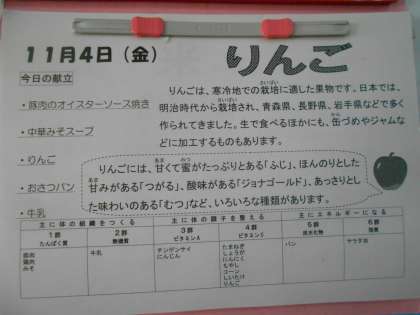 11月4日（金）
りんご
今日の献立
・豚肉のオイスターソース焼き
・中華みそスープ
・りんご
・おさつパン
・牛乳
りんごは、寒冷地での栽培に適した果物です。日本では、
明治時代から栽培され、青森県、長野県、岩手県などで多く
作られてきました。生で食べるほかにも、缶づめやジャムな
どに加工するものもあります。
りんごには、甘くて蜜がたっぷりとある「ふじ」、ほんのりとした
甘みがある「つがる」、酸味がある「ジョナゴールド」、あっさりとし
た味わいのある「むつ」など、いろいろな種類があります。
主に体の組織をつくる 主に体の調子を整える 主にエネルギーになる
1群 2群 3群 4群 5群 6群
たんぱく質 無機質 ビタミンA ビタミンC 炭水化物 脂質
豚肉 牛乳 チンゲンサイ たまねぎ パン サラダ油
鶏肉 にんじん しょうが
みそ にんにく
もやし
コーン
しいたけ
りんご